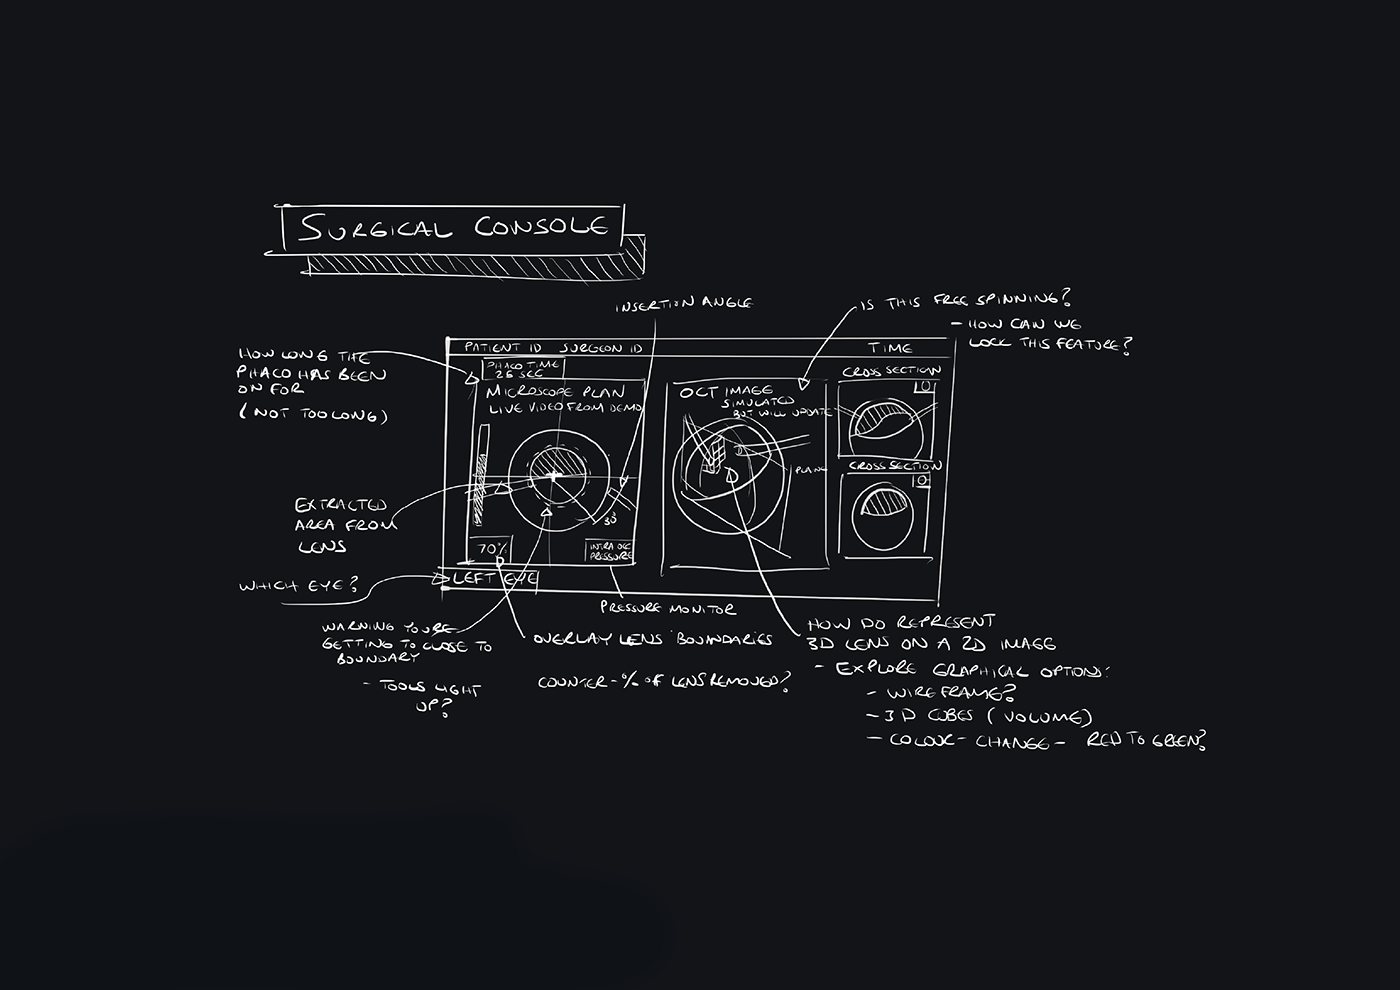 SURGICAL CONSOLE
INSERTION ANGLE
IS THIS FREE SPINNING?
- HOW CAN WE
LOCK THIS FEATURE?
HOW LONG THE
PHACO HAS BEEN
ON FOR
(NOT TOO LONG)
PATIENT ID SURGEON ID
TIME
PHACO TIME
26 SEC
MICROSCOPE PLAN
LIVE VIDEO FROM DEMO
OCT IMAGE
SIMULATED
BUT WILL UPDATE
PLANE
CROSS SECTION
CROSS SECTION
30°
70%
INTRA OCC
PRESSURE
LEFT EYE
EXTRACTED
AREA FROM
LENS
WHICH EYE?
WARNING YOU'RE
GETTING TO CLOSE TO
BOUNDARY
- TOOLS LIGHT
UP?
PRESSURE MONITOR
OVERLAY LENS BOUNDARIES
COUNTER - % OF LENS REMOVED?
HOW DO REPRESENT
3D LENS ON A 2D IMAGE
- EXPLORE GRAPHICAL OPTIONS:
- WIREFRAME?
- 3D CUBES (VOLUME)
- COLOUR - CHANGE - RED TO GREEN?